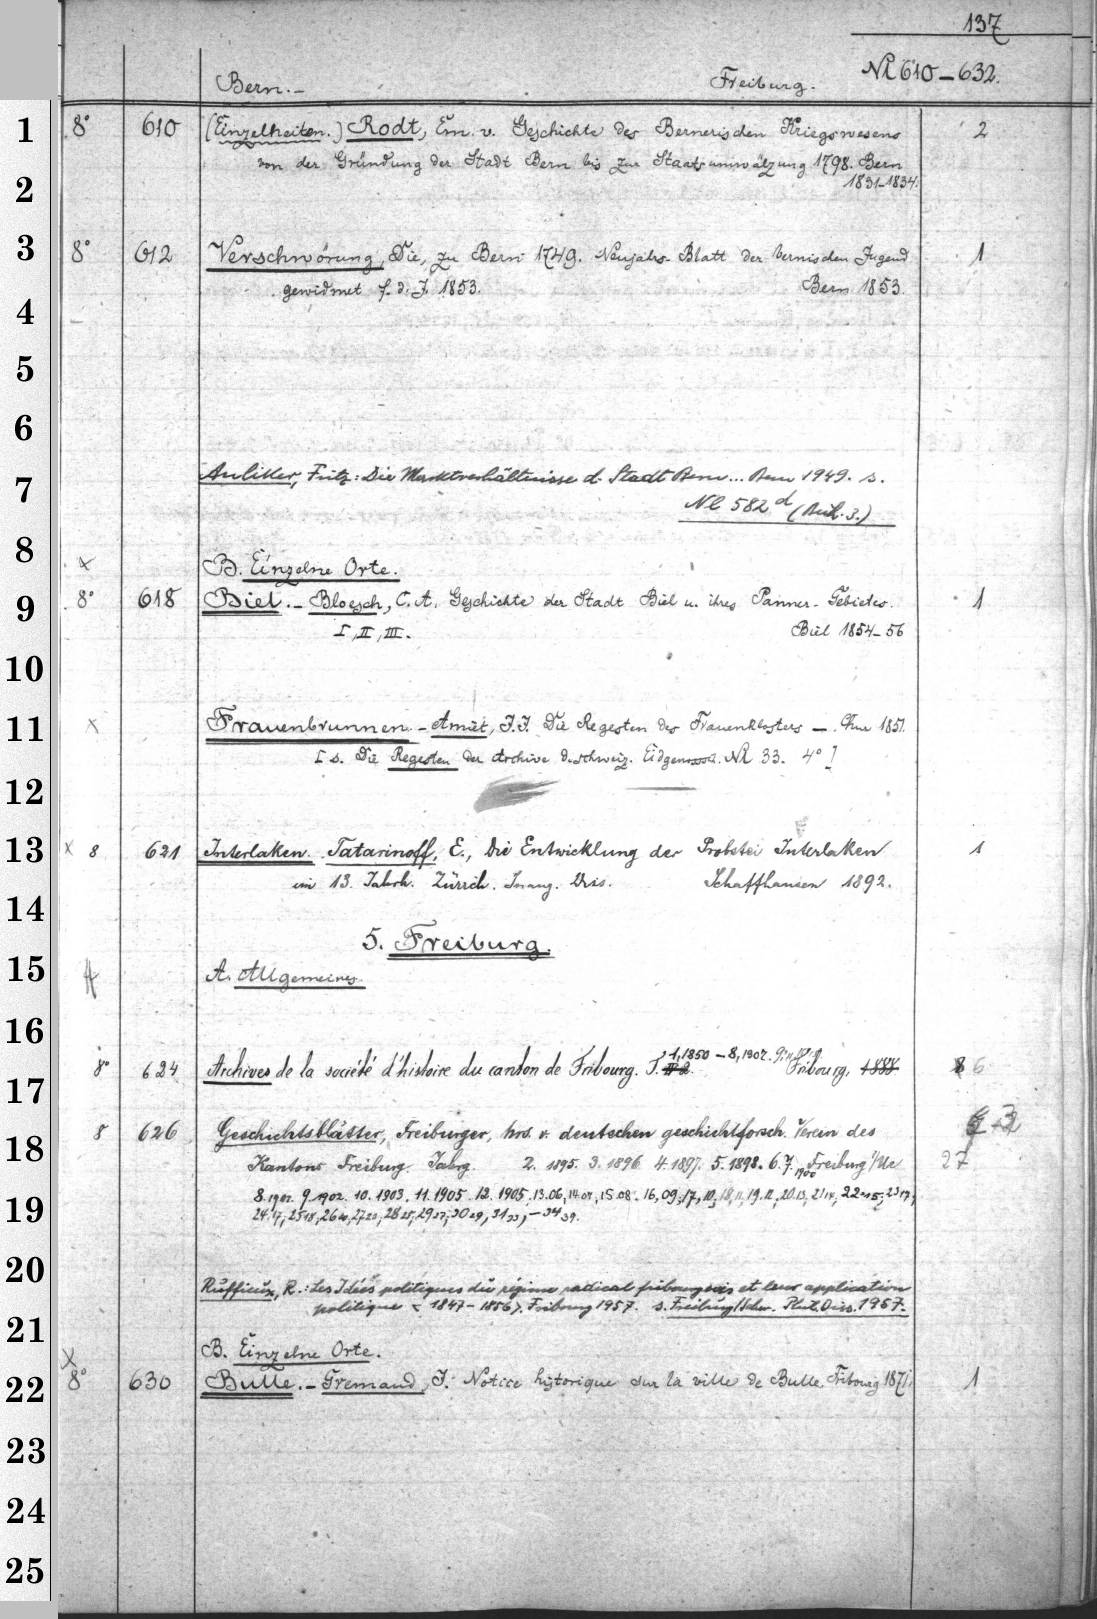 137
Bern.– Freiburg. Nl 610–632.
1 8° 610 (Einzelheiten.) Rodt, Em. v. Geschichte des Bernerischen Kriegswesens 2
von der Gründung der Stadt Bern bis zur Staatsumwälzung 1798. Bern
1831–1834.
2
3 8° 612 Verschwörung, Die, zu Bern 1749. Neujahrs-Blatt der bernischen Jugend 1
gewidmet f. d. J. 1853. Bern 1853.
4
5
6
7 Auliker, Fritz: Die Marktverhältnisse d. Stadt Bern... Bern 1949. s.
Nl 582 d (Beih. 3.)
8 x B. Einzelne Orte.
9 8° 618 Biel.– Bloesch, C. A. Geschichte der Stadt Biel u. ihres Panner-Gebietes. 1
I, II, III. Biel 1854–56
10
11 x Frauenbrunnen.– Amiet, J. J. Die Regesten des Frauenklosters –. Chur 1851.
[s. Die Regesten der Archive d. schweiz. Eidgenossensch. Nl 33. 4°]
12
13 x 8 621 Interlaken. Tatarinoff, E., Die Entwicklung der Probstei Interlaken 1
im 13. Jahrh. Zürich. Inaug. Diss. Schaffhausen 1892.
14
5. Freiburg.
15 A. Allgemeines.
16
1, 1850 – 8, 1907.
17 8° 624 Archives de la société d'histoire du canton de Fribourg. T. Fribourg, 1888 6
18 8 626 Geschichtsblätter, Freiburger, hrs. v. deutschen geschichtforsch. Verein des
Kantons Freiburg. Jahrg. 2. 1895. 3. 1896. 4. 1897. 5. 1898. 6. 7. 1900 Freiburg i/Ue 27
19 8. 1901. 9. 1902. 10. 1903. 11. 1905. 12. 1905, 13. 06, 14. 07, 15. 08. 16, 09, 17, 10, 18, 11, 19. 12, 20. 13, 21 14, 22 15, 23 17,
24. 17, 25 18, 26 20, 27 23, 28 25, 29 27, 30 29, 31 33, – 34 39.
20 Ruffieux, R.: Les Idées politiques du régime radical fribourgeois et leur application
politique < 1847–1856>. Fribourg 1957. s. Freiburg/Schw. Phil. Diss. 1957.
21 B. Einzelne Orte.
x
22 8° 630 Bulle.– Gremaud, J. Notice historique sur la ville de Bulle. Fribourg 1871. 1
23
24
25